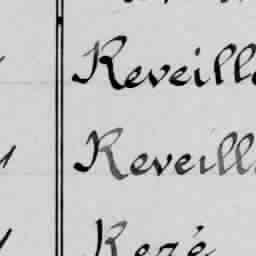 Reveill
Reveill
Rezé